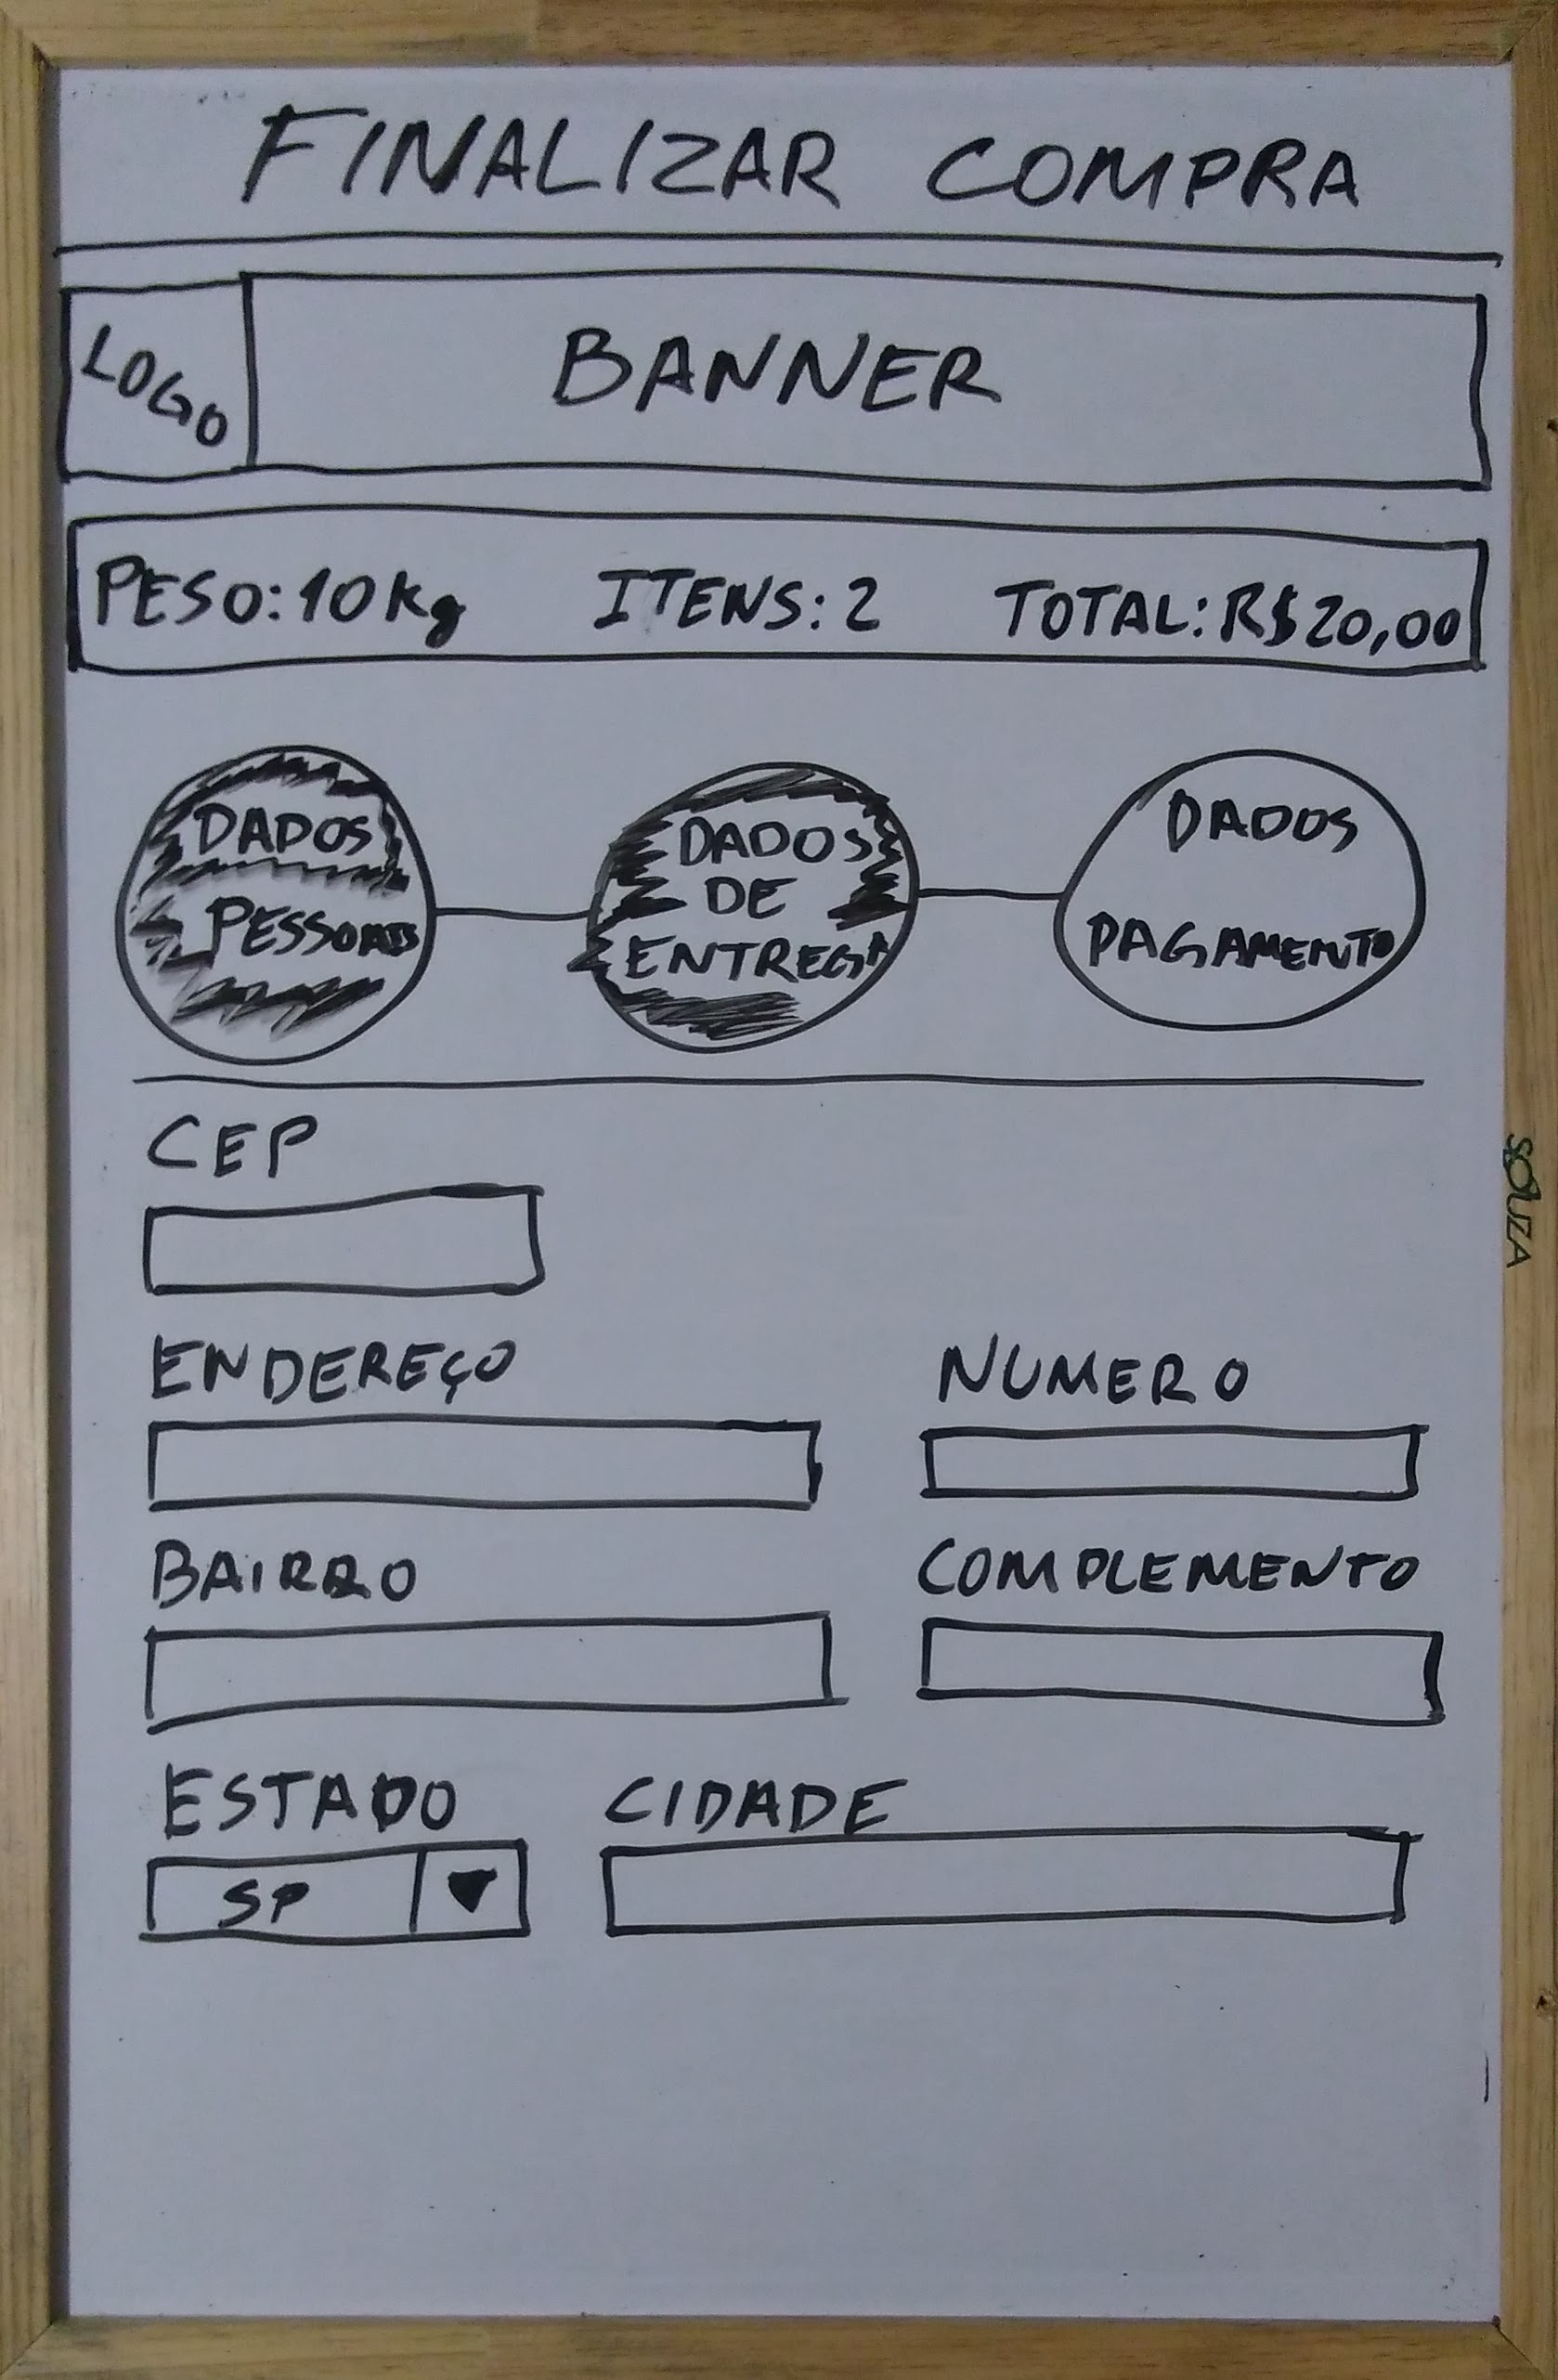 FINALIZAR COMPRA
LOGO BANNER
PESO: 10 kg ITENS: 2 TOTAL: R$ 20,00
DADOS PESSOAIS
DADOS DE ENTREGA
DADOS PAGAMENTO
CEP
ENDEREÇO NUMERO
BAIRRO COMPLEMENTO
ESTADO CIDADE
SP
SOUZA